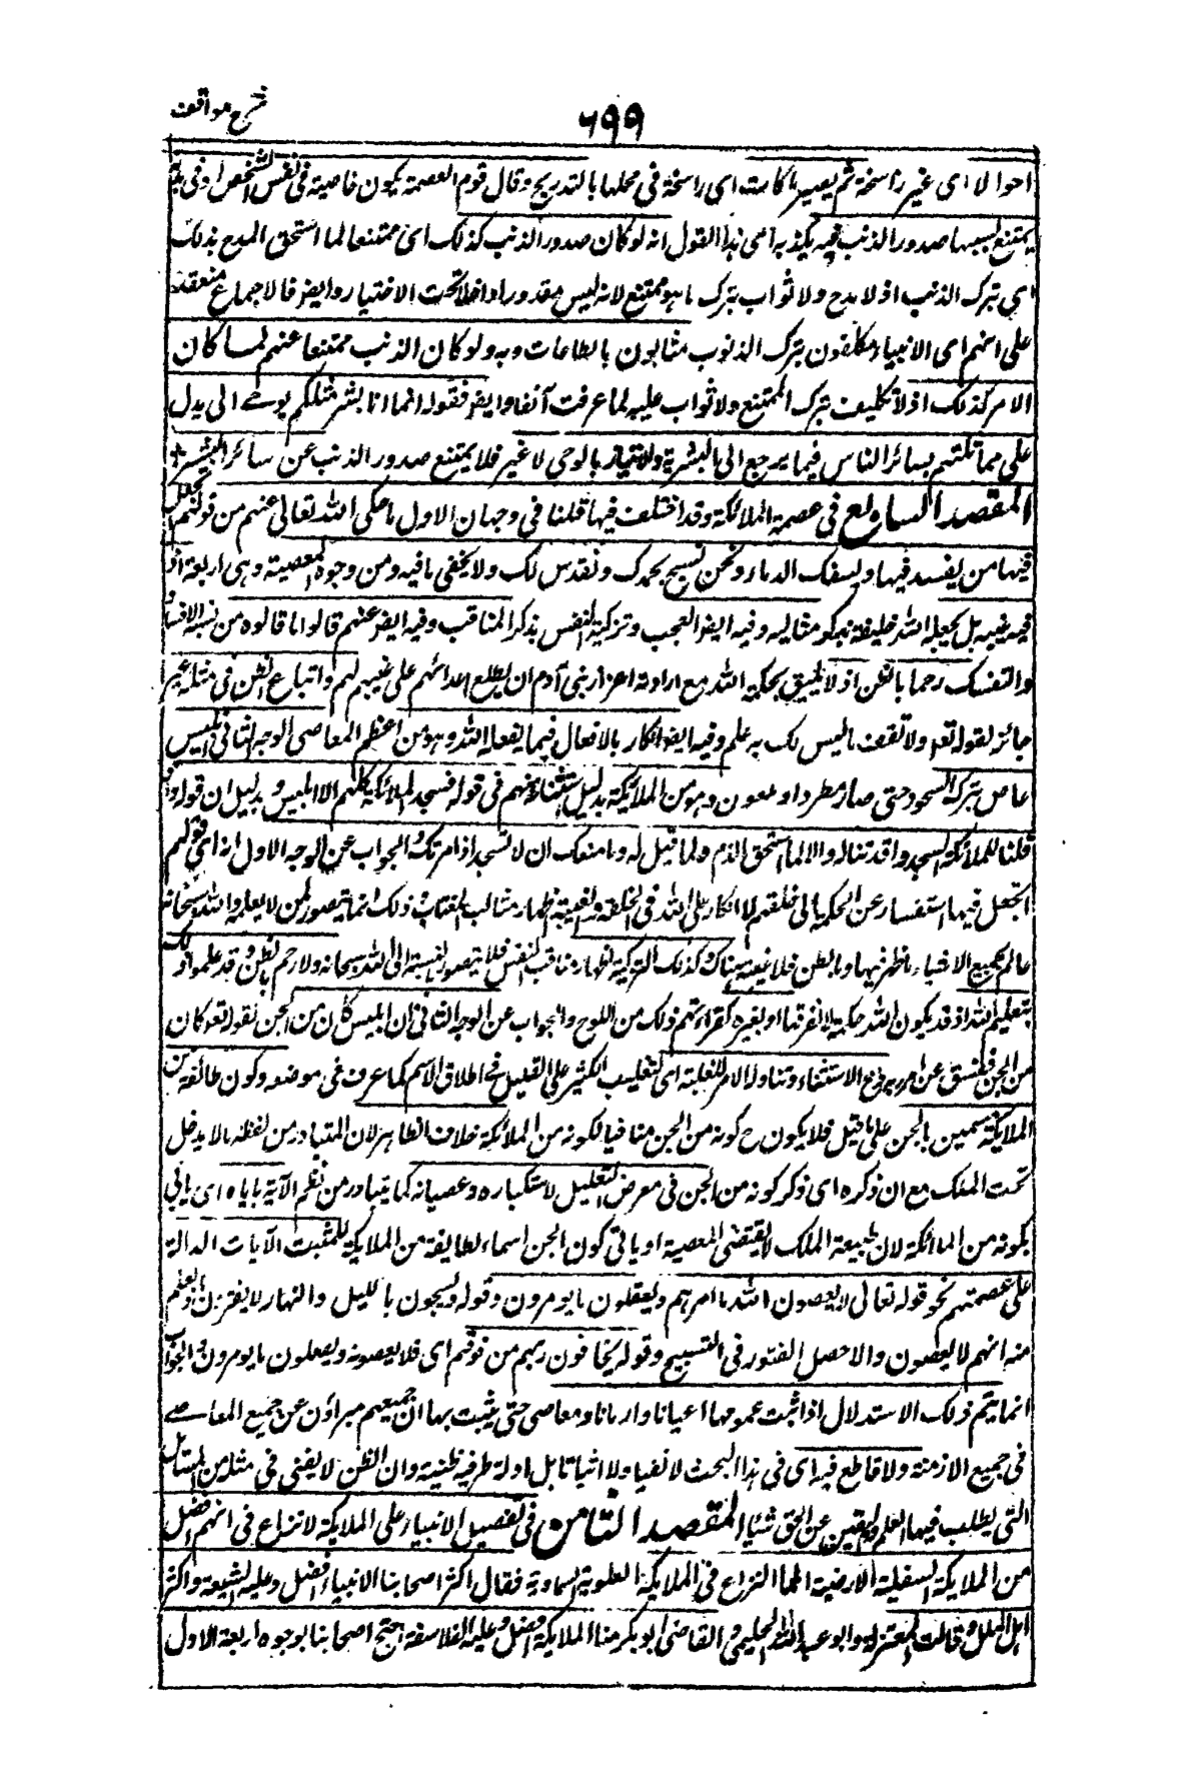 شرح مواقف
٦٩٩
احوالا اى غير راسخة ثم يصير ملكات اى راسخة فى محلها بالتدريج وقال قوم العصمة يكون خاصية فى نفس الشخص او فى بدنه
يمتنع بسببها صدور الذنب فيه يكذبه اى هذا القول انه لو كان صدور الذنب كذلك اى ممتنعا لما استحق المدح بذلك
اى بترك الذنب اذ لا مدح ولا ثواب بترك ما هو ممتنع لانه ليس مقدورا داخلا تحت الاختيار وايضر فالاجماع منعقد
على انهم اى الانبياء مكلفون بترك الذنوب مثابون بالطاعات وبه ولو كان الذنب ممتنعا عنهم لما كان
الامر كذلك اذ لا تكليف بترك الممتنع ولا ثواب عليه لما عرفت آنفا وايضر فقوله انما انا بشر مثلكم يوحى الى يدل
على مماثلتهم لسائر الناس فيما يرجع الى البشرية والامتياز بالوحى لا غير فلا يمتنع صدور الذنب عن سائر البشر
المقصد السابع فى عصمة الملائكة وقد اختلف فيها فلنا فى وجهان الاول ما حكى الله تعالى عنهم من قولهم اتجعل
فيها من يفسد فيها ويسفك الدماء ونحن نسبح بحمدك ونقدس لك ولا يخفى ما فيه من وجوه المعصية وهى اربعة اذ
فيه غيبة بل يجعله الله خليفة بذكر مثالبه وفيه ايضر العجب وتزكية النفس بذكر المناقب وفيه ايضر عنهم قالوا ما قالوه من نسبة الافساد
والسفك رجما بالظن اذ لا يليق بحكمة الله مع ارادته اعزاز بنى آدم ان يطلع اعدائهم على عيبهم لهم واتباع الظن فى مثله غير
جائز لقوله تعر ولا تقف ما ليس لك به علم وفيه ايضر انكار بالافعال فيما يفعله الله وهو من اعظم المعاصى الوجه الثانى ابليس
عاص بترك السجود حتى صار مطرودا وملعون وهو من الملايكة بدليل استثنائه منهم فى قوله فسجد الملائكة كلهم الا ابليس وبدليل ان قوله واذ
قلنا للملائكة اسجدوا قد تناوله والا لما استحق الذم ولما قيل له ما منعك ان لا تسجد اذ امرتك والجواب عن الوجه الاول انه اى قولهم
اتجعل فيها استفسار عن الحكمة الى خلقهم لا انكار على الله فى الخلقة والغيبة اظهار مثالب المغتاب وذلك انما يتصور لمن لا يعلمه والله سبحانه
عالم بجميع الاشياء ما ظهر فيها وما بطن فلا غيبة هناك وكذلك التزكية اظهار مناقب النفس فلا يتصور بالنسبة الى الله سبحانه ولا رجم بالظن وقد علموا ذلك
بتعليم الله اذ قد يكون لله حكمة لا نعرفها او بغيره كقراءتهم ذلك من اللوح والجواب عن الوجه الثانى ان ابليس كان من الجن لقوله تعر كان
من الجن ففسق عن امر ربه وصح الاستثناء وتناوله الامر للغلبة اى لتغليب الكثير على القليل فى اطلاق الاسم كما عرف فى موضعه وكون طائفة من
الملايكة مسمين بالجن على ما قيل فلا يكون ح كونه من الجن منافيا لكونه من الملائكة خلاف الظاهر لان المتبادر من لفظه ما لا يدخل
تحت الملك مع ان ذكره اى ذكر كونه من الجن فى معرض التعليل لاستكباره وعصيانه كما يتبادر من نظم الآية يأباه اى يأبى
كونه من الملائكة لان طبيعة الملك لا يقتضى المعصية او يأبى كون الجن اسما لطايفة من الملايكة للمثبت الآيات الدالة
على عصمتهم نحو قوله تعالى لا يعصون الله ما امرهم ويفعلون ما يومرون وقوله يسبحون بالليل والنهار لا يفترون والعلم
منه انهم لا يعصون والا حصل الفتور فى التسبيح وقوله يخافون ربهم من فوقهم اى فلا يعصونه ويفعلون ما يومرون والجواب
انما يتم ذلك الاستدلال اذا ثبت عمومها اعيانا وازمانا ومعاصى حتى يثبت بها ان جميعهم مبراؤن عن جميع المعاصى
فى جميع الازمنة ولا قاطع فيه اى فى هذا البحث لا نفيا ولا اثباتا بل ادلة طرفيه ظنية وان الظن لا يغنى فى مثله من المسائل
التى يطلب فيها العلم واليقين عن الحق شيئا المقصد الثامن فى تفضيل الانبياء على الملايكة لا نزاع فى انهم افضل
من الملايكة السفلية الارضية انما النزاع فى الملايكة العلوية السماوية فقال اكثر اصحابنا الانبياء افضل وعليه الشيعة واكثر
اهل الملل وقالت المعتزلة وابو عبد الله الحليمى والقاضى ابو بكر منا الملايكة افضل وعليه الفلاسفة احتج اصحابنا بوجوه اربعة الاول